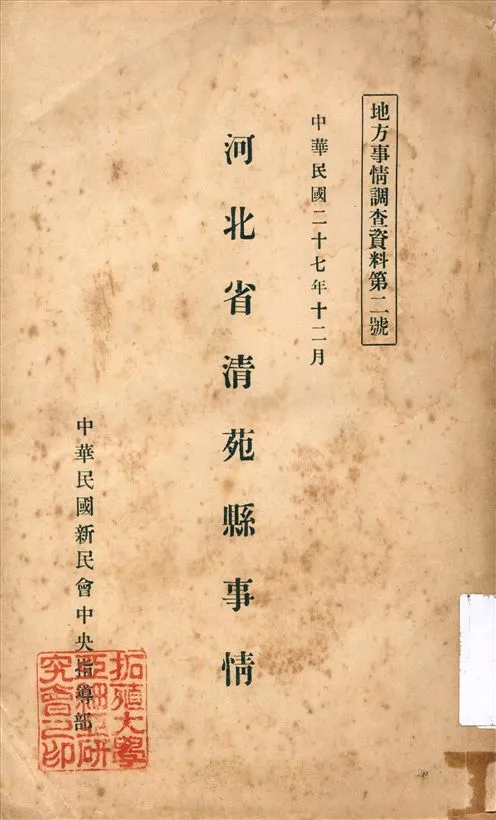 地方事情調査資料第二號
中華民國二十七年十二月
河北省清苑縣事情
中華民國新民會中央指導部
拓殖大學
亞細亞研
究會之印